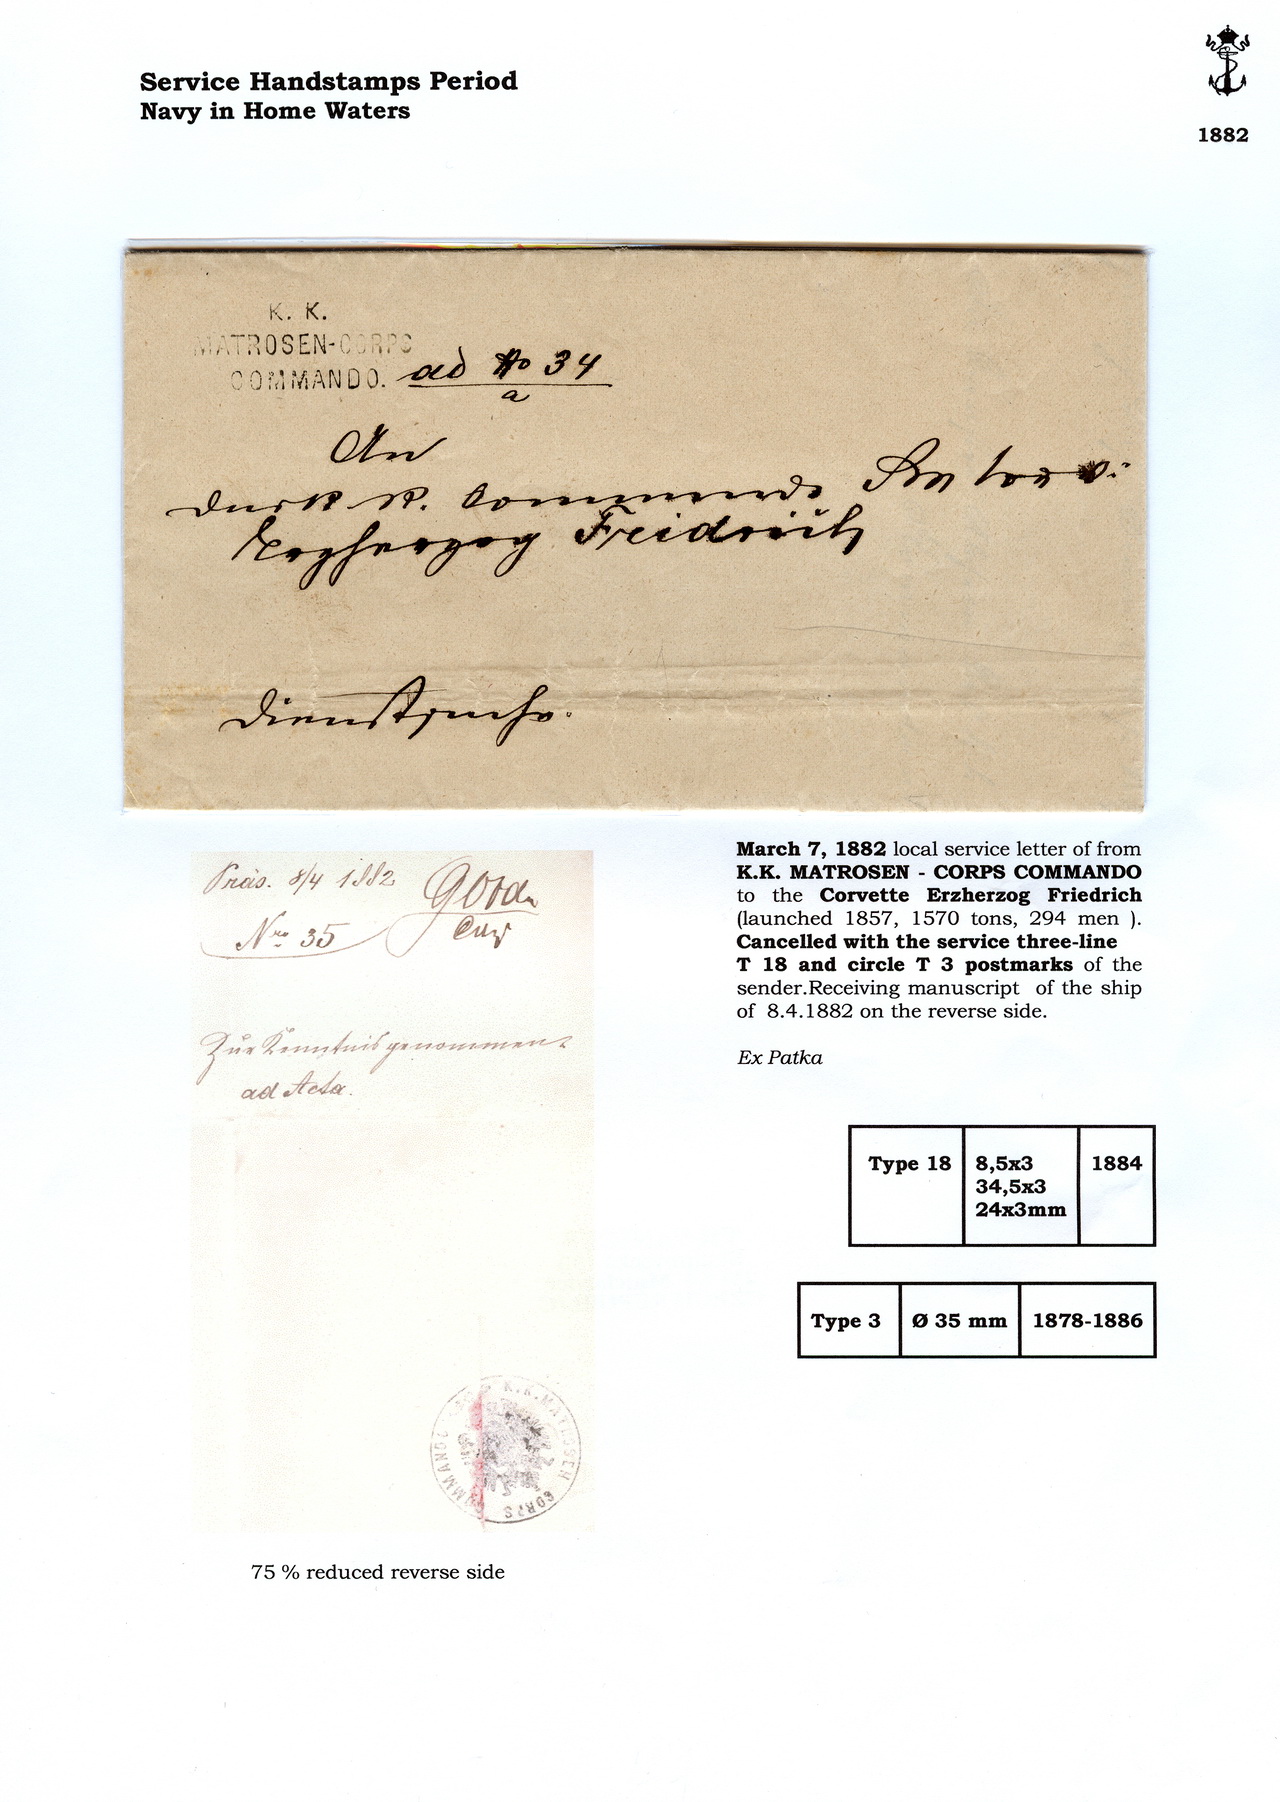 Service Handstamps Period
Navy in Home Waters
1882
K. K.
MATROSEN-CORPS
COMMANDO.
ad No 34
a
An
K. Commando
Erzherzog Freidrich
Dienstsache.
Präs. 8/4 1882
Nro 35
Zur Kenntnis genommen
ad Acta.
K.K. MATROSEN CORPS COMMANDO
75 % reduced reverse side
March 7, 1882 local service letter of from
K.K. MATROSEN - CORPS COMMANDO
to the Corvette Erzherzog Friedrich
(launched 1857, 1570 tons, 294 men ).
Cancelled with the service three-line
T 18 and circle T 3 postmarks of the
sender.Receiving manuscript of the ship
of 8.4.1882 on the reverse side.
Ex Patka
Type 18 8,5x3 1884
34,5x3
24x3mm
Type 3 Ø 35 mm 1878-1886